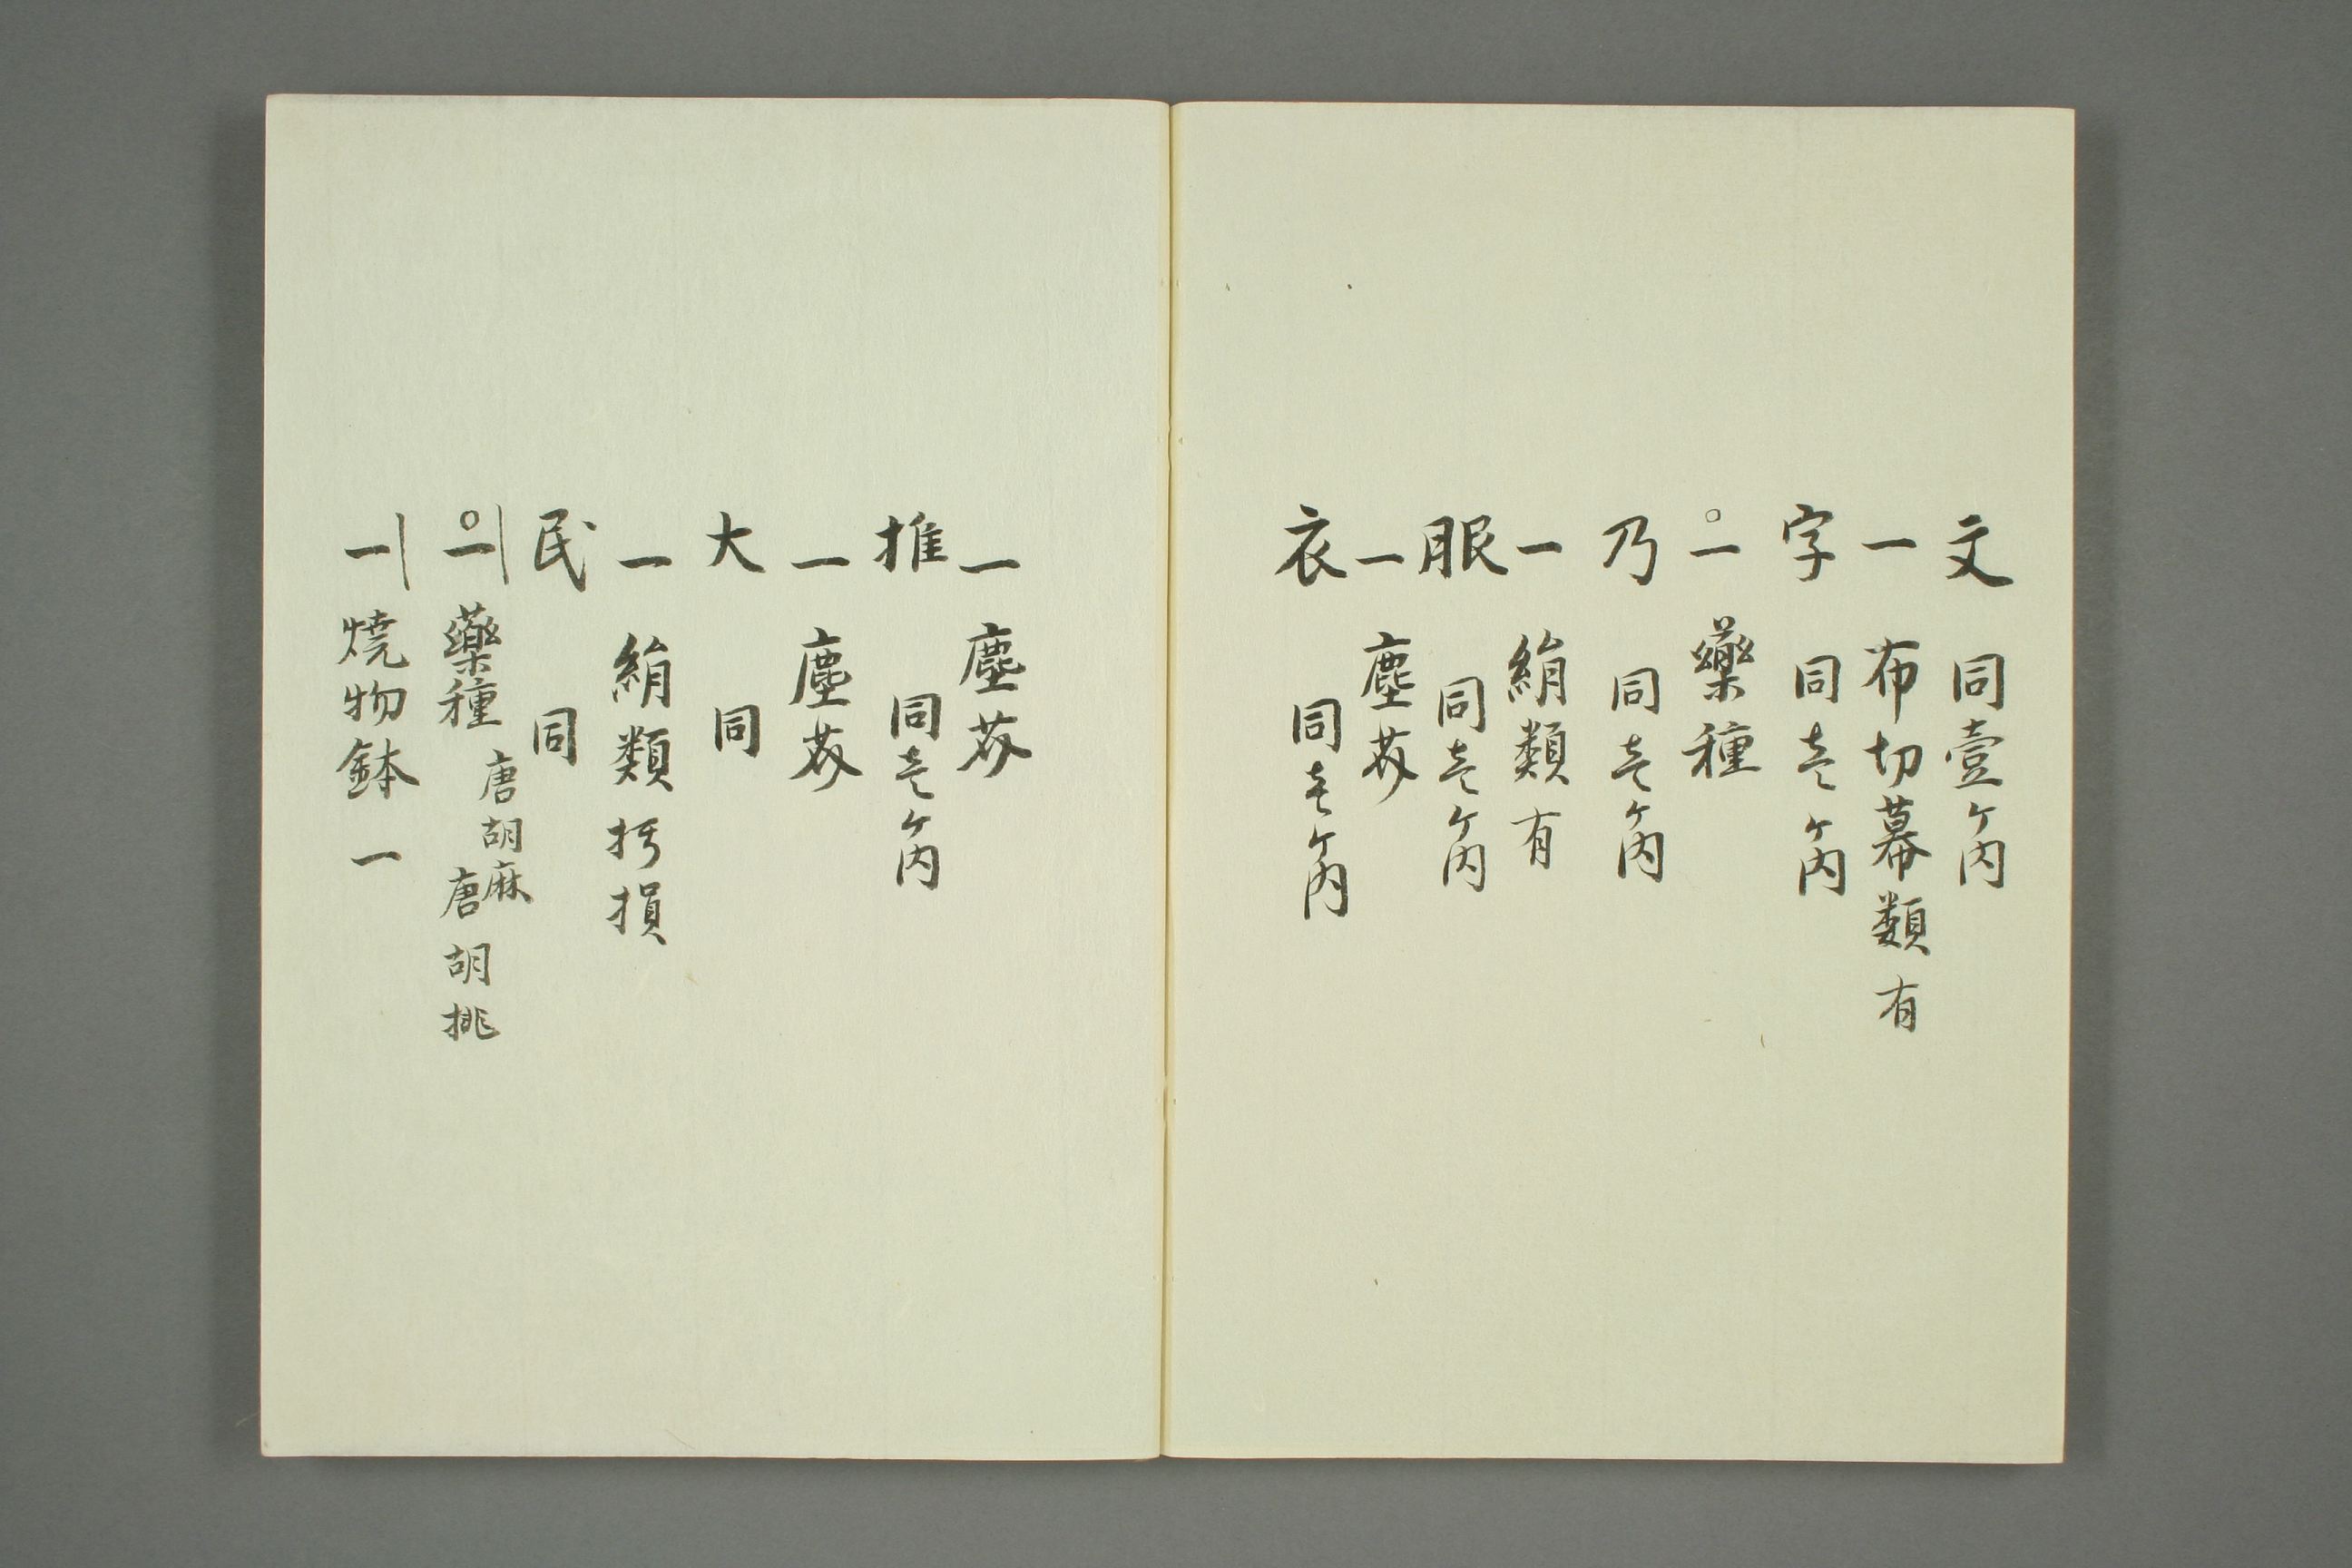 文 同壹ケ内
一 布切幕類有
字 同壱ケ内
一 藥種
乃 同壱ケ内
一 絹類有
服 同壱ケ内
一 塵芥
衣 同壱ケ内
一 塵芥
推 同壱ケ内
一 塵芥
大 同
一 絹類朽損
民 同
一 藥種 唐胡麻 唐胡桃
一 焼物鉢 一